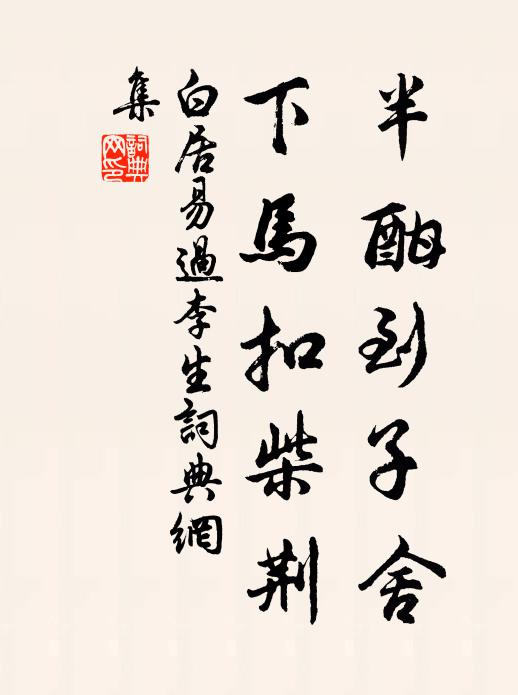 半酣到子舍
下馬扣柴荆
白居易過李生詞典網
集
詞典
網印